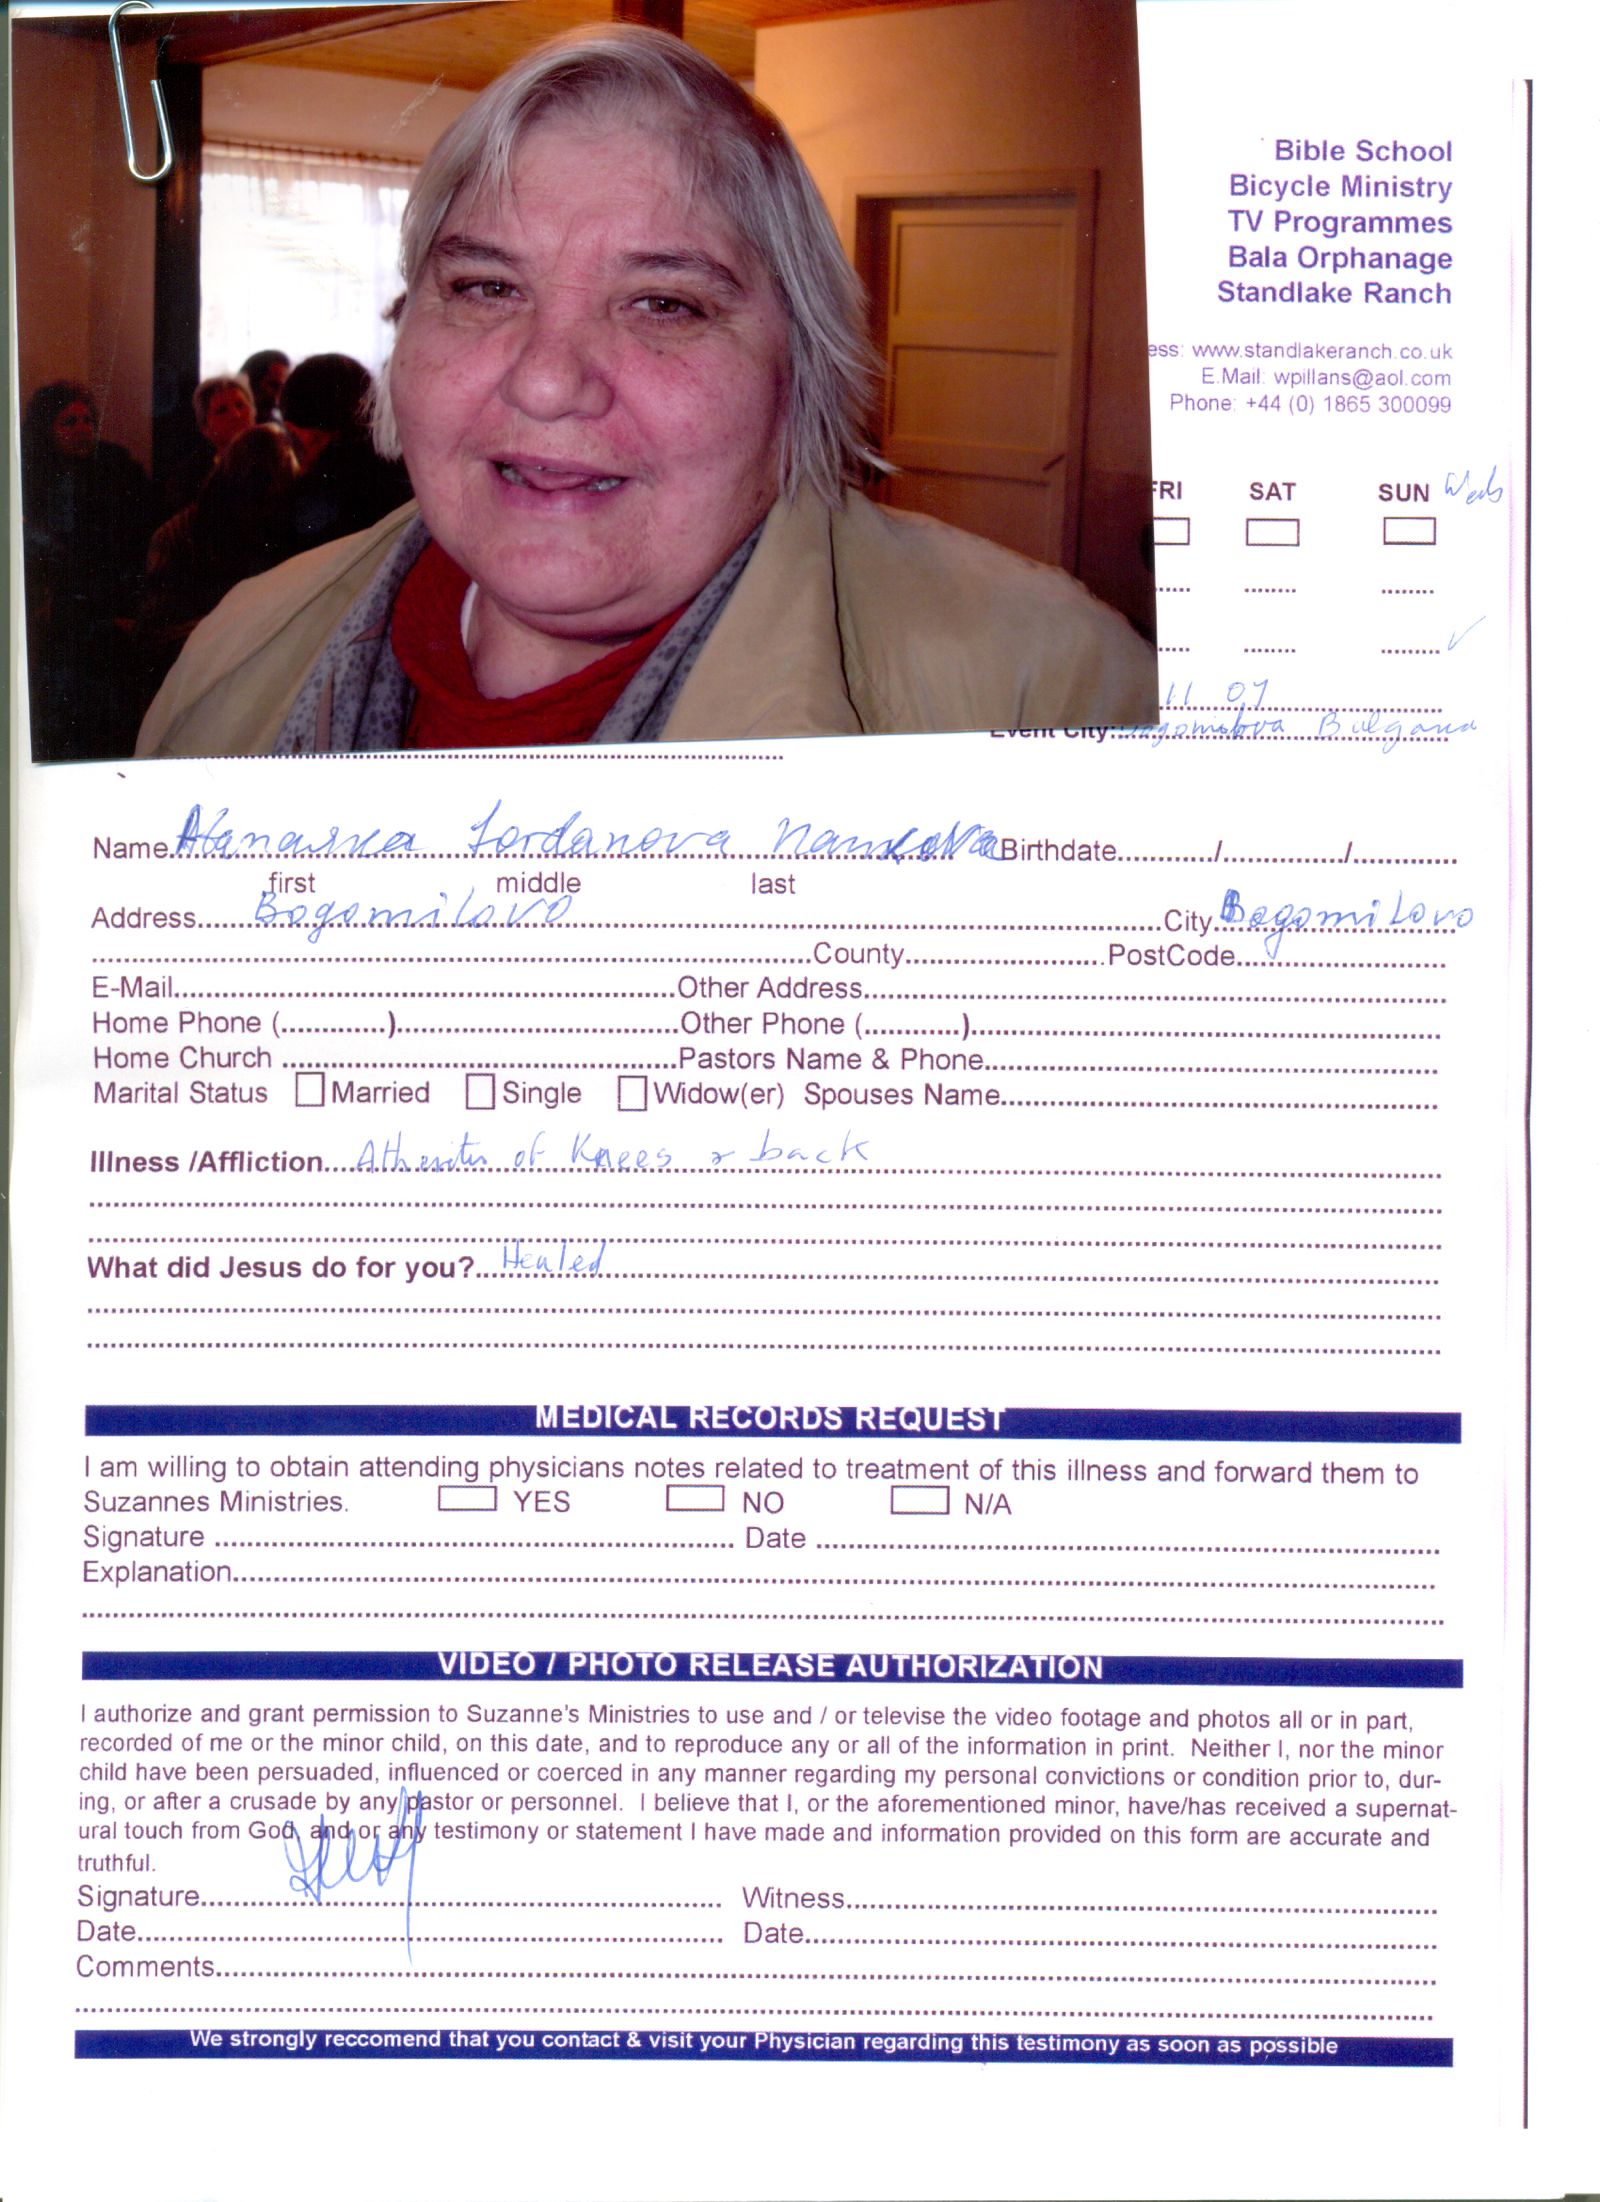 Bible School
Bicycle Ministry
TV Programmes
Bala Orphanage
Standlake Ranch
ess: www.standlakeranch.co.uk
E.Mail: wpillans@aol.com
Phone: +44 (0) 1865 300099
FRI SAT SUN Weds
11 07
Event City: Bulgaria
Name Iordanova Birthdate / /
first middle last
Address Bogomilovo City Bogomilovo
County PostCode
E-Mail Other Address
Home Phone ( ) Other Phone ( )
Home Church Pastors Name & Phone
Marital Status Married Single Widow(er) Spouses Name
Illness /Affliction of Knees & back
What did Jesus do for you? Healed
MEDICAL RECORDS REQUEST
I am willing to obtain attending physicians notes related to treatment of this illness and forward them to
Suzannes Ministries. YES NO N/A
Signature Date
Explanation
VIDEO / PHOTO RELEASE AUTHORIZATION
I authorize and grant permission to Suzanne's Ministries to use and / or televise the video footage and photos all or in part,
recorded of me or the minor child, on this date, and to reproduce any or all of the information in print. Neither I, nor the minor
child have been persuaded, influenced or coerced in any manner regarding my personal convictions or condition prior to, dur-
ing, or after a crusade by any pastor or personnel. I believe that I, or the aforementioned minor, have/has received a supernat-
ural touch from God, and or any testimony or statement I have made and information provided on this form are accurate and
truthful.
Signature Witness
Date Date
Comments
We strongly reccomend that you contact & visit your Physician regarding this testimony as soon as possible